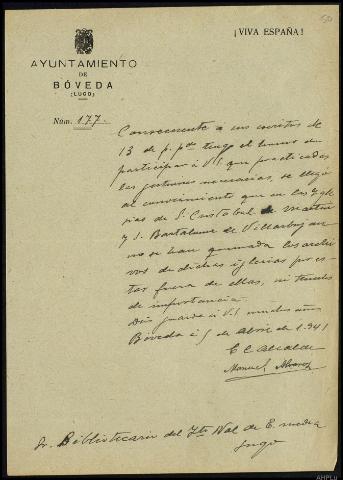 50
¡VIVA ESPAÑA!
AYUNTAMIENTO
DE
BÓVEDA
(LUGO)
Núm. 177.
Consecuente á su escrito de
13 de p. pdo tengo el honor de
participar á V.S. que practicadas
las gestiones necesarias, se llegó
al conocimiento que en las Igle
sias de S. Cristobal de Martin
y S. Bartolome de Villarbujan
no se han quemado los archi
vos de dichas iglesias por es
tar fuera de ellas, ni
de importancia.
Dios guarde á V.S. muchos años
Bóveda á 5 de Abril de 1941
El Alcalde
Manuel Alvarez
Sr. Bibliotecario del Ito Nal de E. media
Lugo
AHPLu